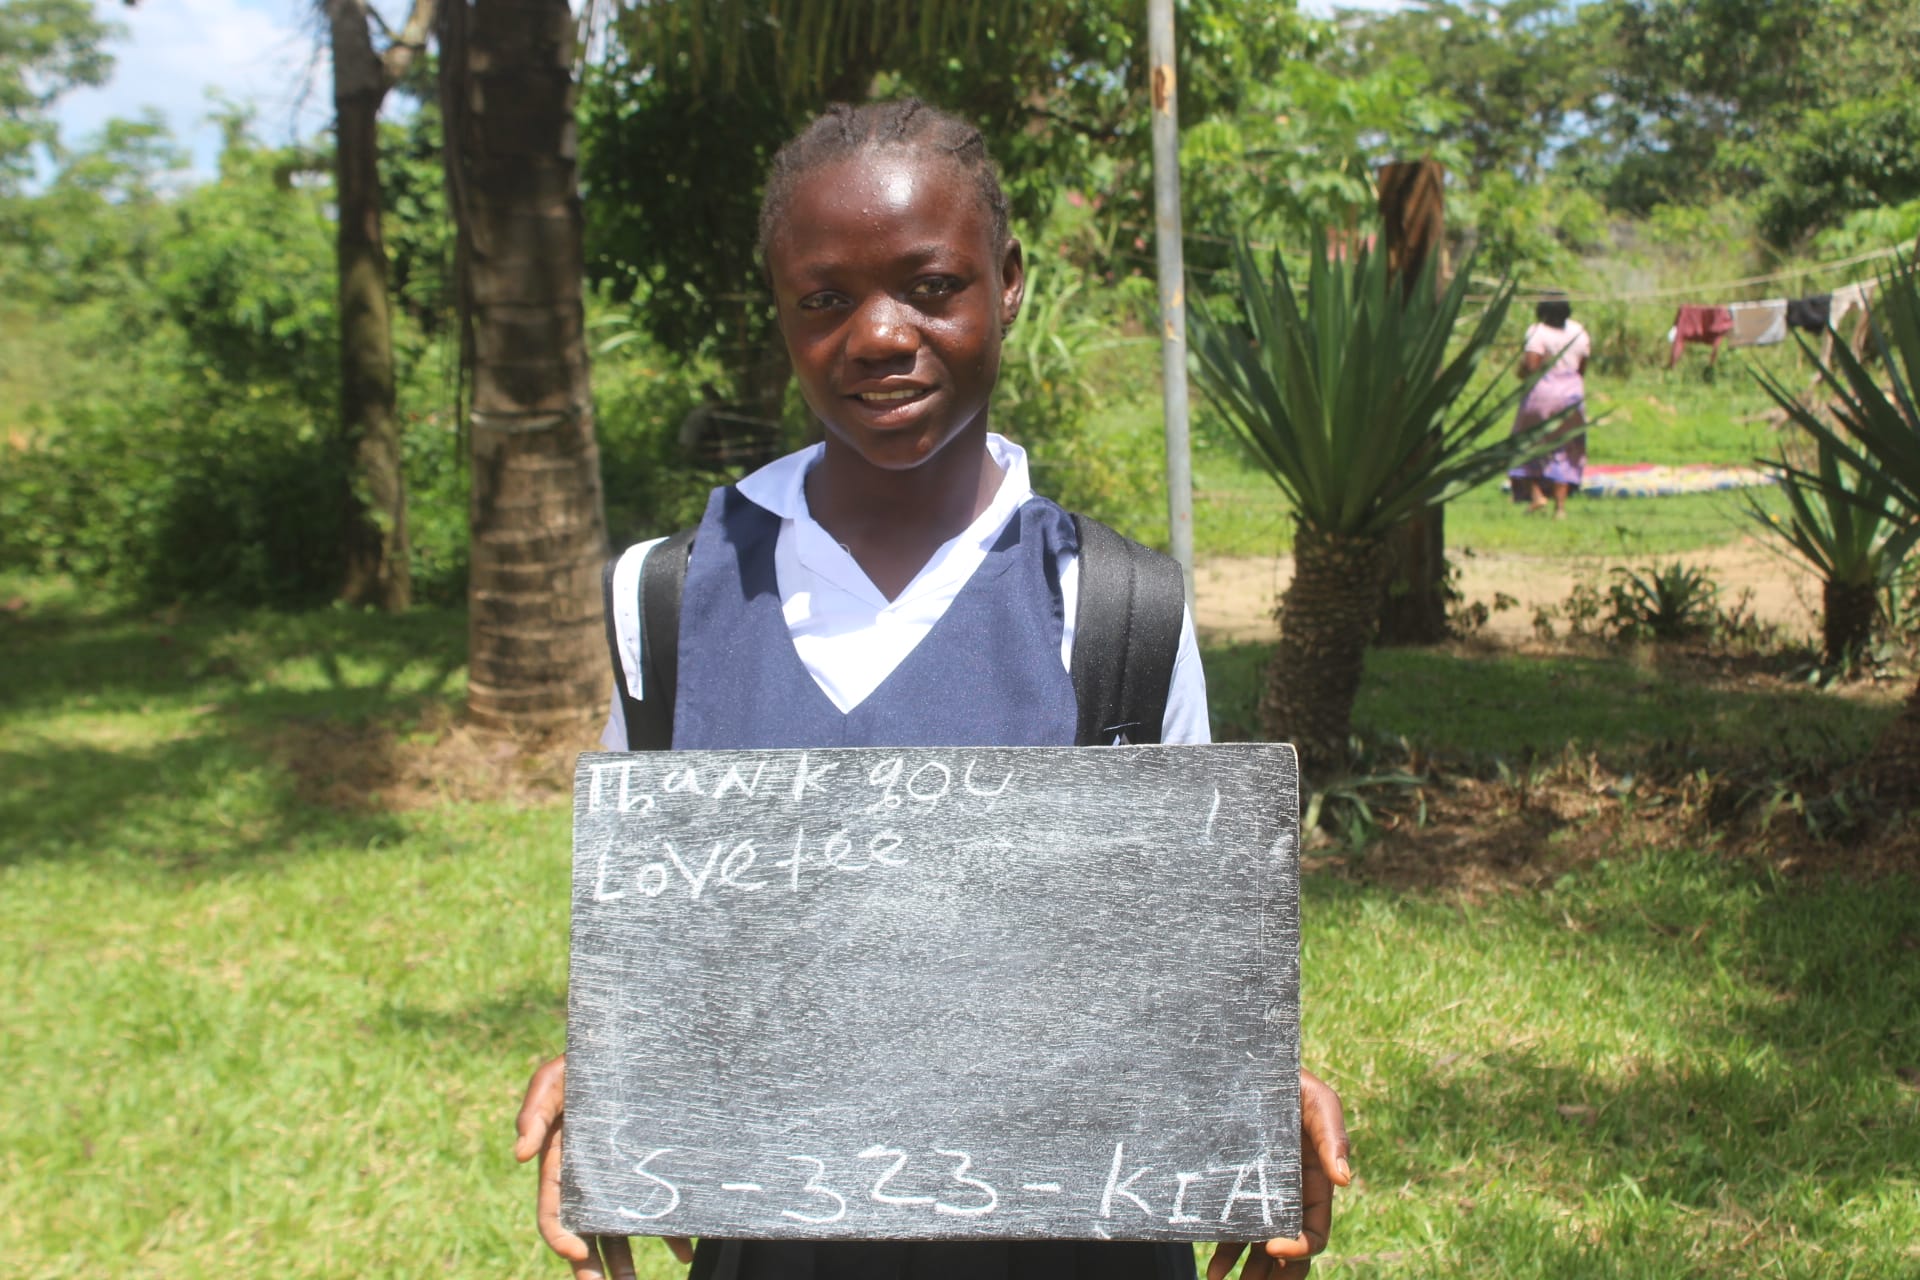 Thank you
Lovetee
S-323-KIA